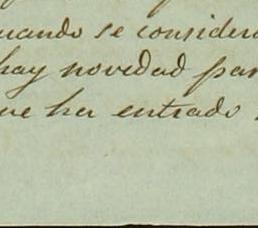 uando se consider
hay novedad par
ue ha entrado